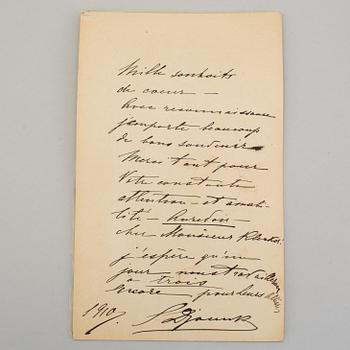 Mille souhaits
de coeur —
Avec reconnaissance
j'emporte beaucoup
de bons souvenirs
Merci tant pour
Votre constante
attention — et amabi-
lité — Aurevoir —
cher Monsieur
j'espère qu'un
jour nous travaillerons
à trois
encore pour leurs
1910